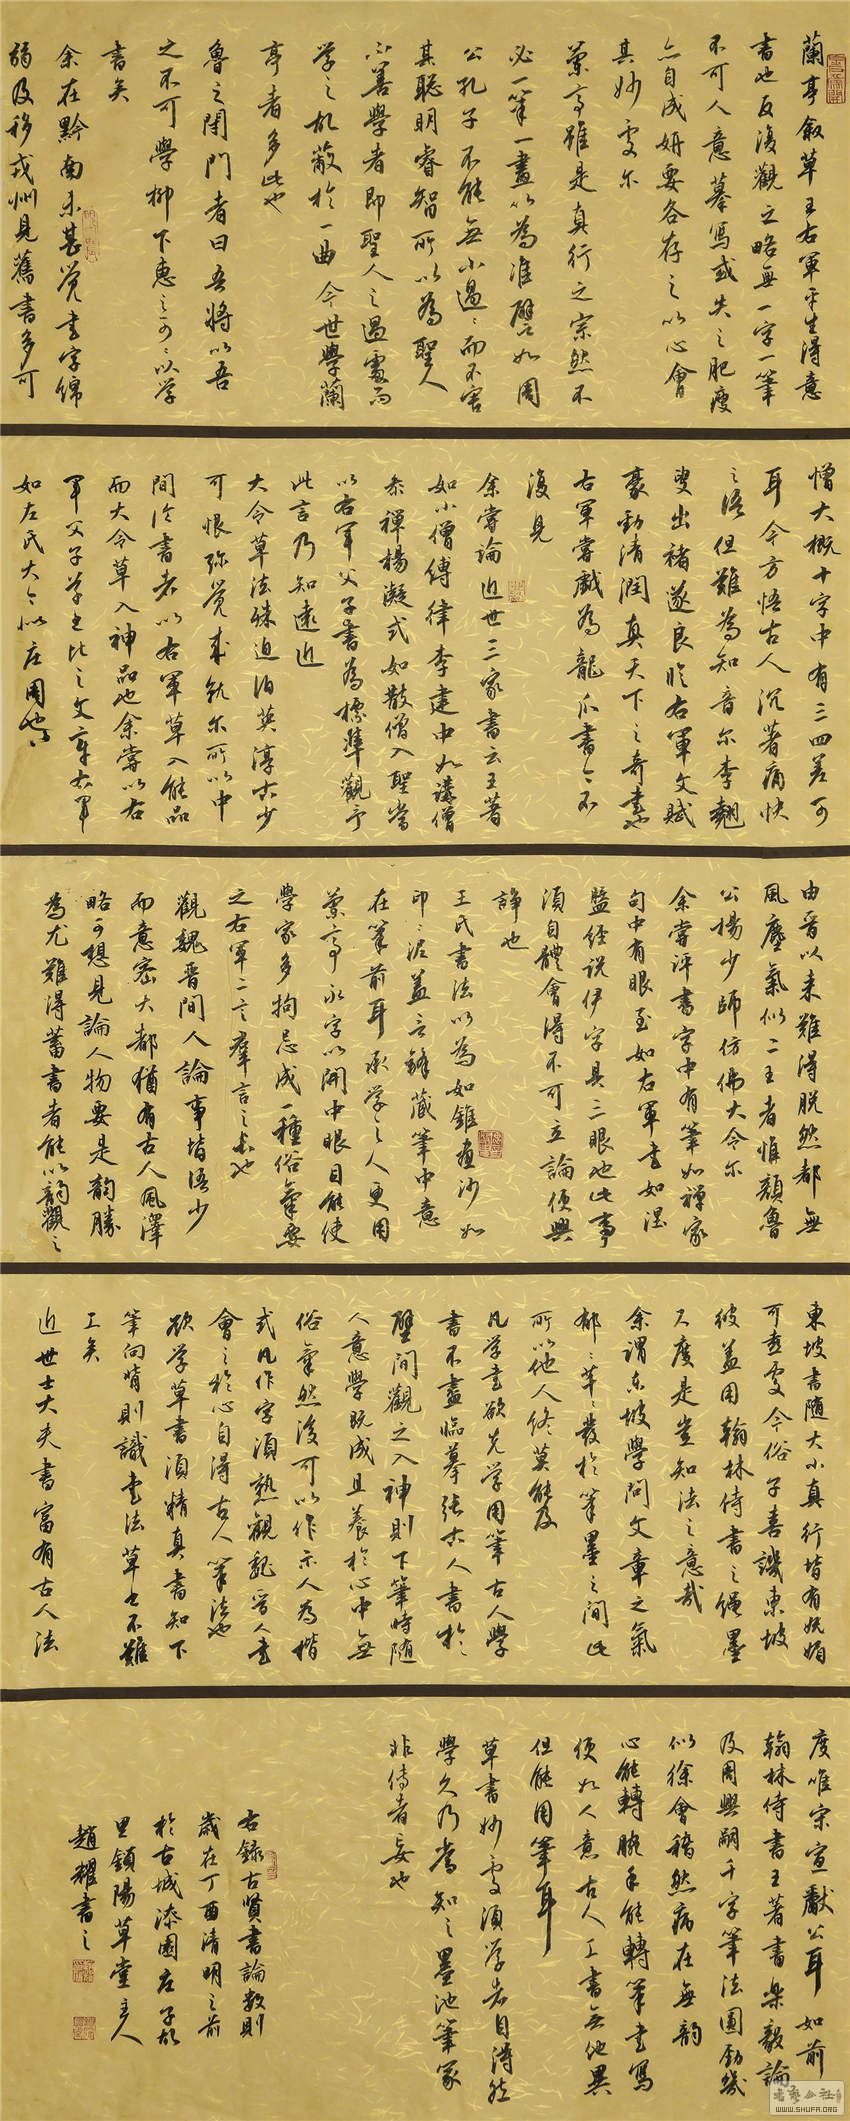 蘭亭敘草王右軍平生得意
書也反復觀之略無一字一筆
不可人意摹寫或失之肥瘦
亦自成妍要各存之以心會
其妙處爾
蘭亭雖是真行之宗然不
必一筆一畫以為准譬如周
公孔子不能無小過過而不害
其聰明睿智所以為聖人
不善學者即聖人之過處而
學之故蔽於一曲今世學蘭
亭者多此也
魯之閉門者曰吾將以吾
之不可學柳下惠之可可以學
書矣
余在黔南未甚覺書字綿
弱及移戎州見舊書多可
憎大概十字中有三四差可
耳今方悟古人沉著痛快
之語但難為知音爾李翹
叟出褚遂良臨右軍文賦
豪勁清潤真天下之奇書也
右軍嘗戲為龍爪書今不
復見
余嘗論近世三家書云王著
如小僧縛律李建中如講僧
參禪楊凝式如散僧入聖當
以右軍父子書為標準觀予
此言乃知遠近
大令草法殊迫伯英淳古少
可恨彌覺成就爾所以中
間論書者以右軍草入能品
而大令草入神品也余嘗以右
軍父子草書比之文章右軍
如左氏大令似莊周也
由晉以來難得脫然都無
風塵氣似二王者惟顏魯
公楊少師仿佛大令爾
余嘗評書字中有筆如禪家
句中有眼至如右軍書如涅
盤經說伊字具三眼也此事
須自體會得不可立論便興
諍也
王氏書法以為如錐畫沙如
印印泥蓋言鋒藏筆中意
在筆前耳承學之人更用
蘭亭永字以開中眼目能使
學家多拘忌成一種俗氣要
之右軍二言群言之長也
觀魏晉間人論事皆語少
而意密大都猶有古人風澤
略可想見論人物要是韻勝
為尤難得蓄書者能以韻觀之
東坡書隨大小真行皆有嫵媚
可喜處今俗子喜譏東坡
彼蓋用翰林侍書之繩墨
尺度是豈知法之意哉
余謂東坡學問文章之氣
郁郁芊芊發於筆墨之間此
所以他人終莫能及
凡學書欲先學用筆古人學
書不盡臨摹張古人書於
壁間觀之入神則下筆時隨
人意學既成且養於心中無
俗氣然後可以作示人為楷
式凡作字須熟觀魏晉人書
會之於心自得古人筆法也
欲學草書須精真書知下
筆向背則識書法草書不難
工矣
近世士大夫書富有古人法
度唯宋宣獻公耳如前
翰林侍書王著書樂毅論
及周興嗣千字筆法圓勁幾
似徐會稽然病在無韻
心能轉腕手能轉筆書寫
便如人意古人工書無他異
但能用筆耳
草書妙處須學者自得然
學久乃當知之墨池筆冢
非傳者妄也
右錄古賢書論數則
歲在丁酉清明之前
於古城漆園莊子故
里鎮陽草堂主人
趙耀書之
WWW.SHUFA.ORG